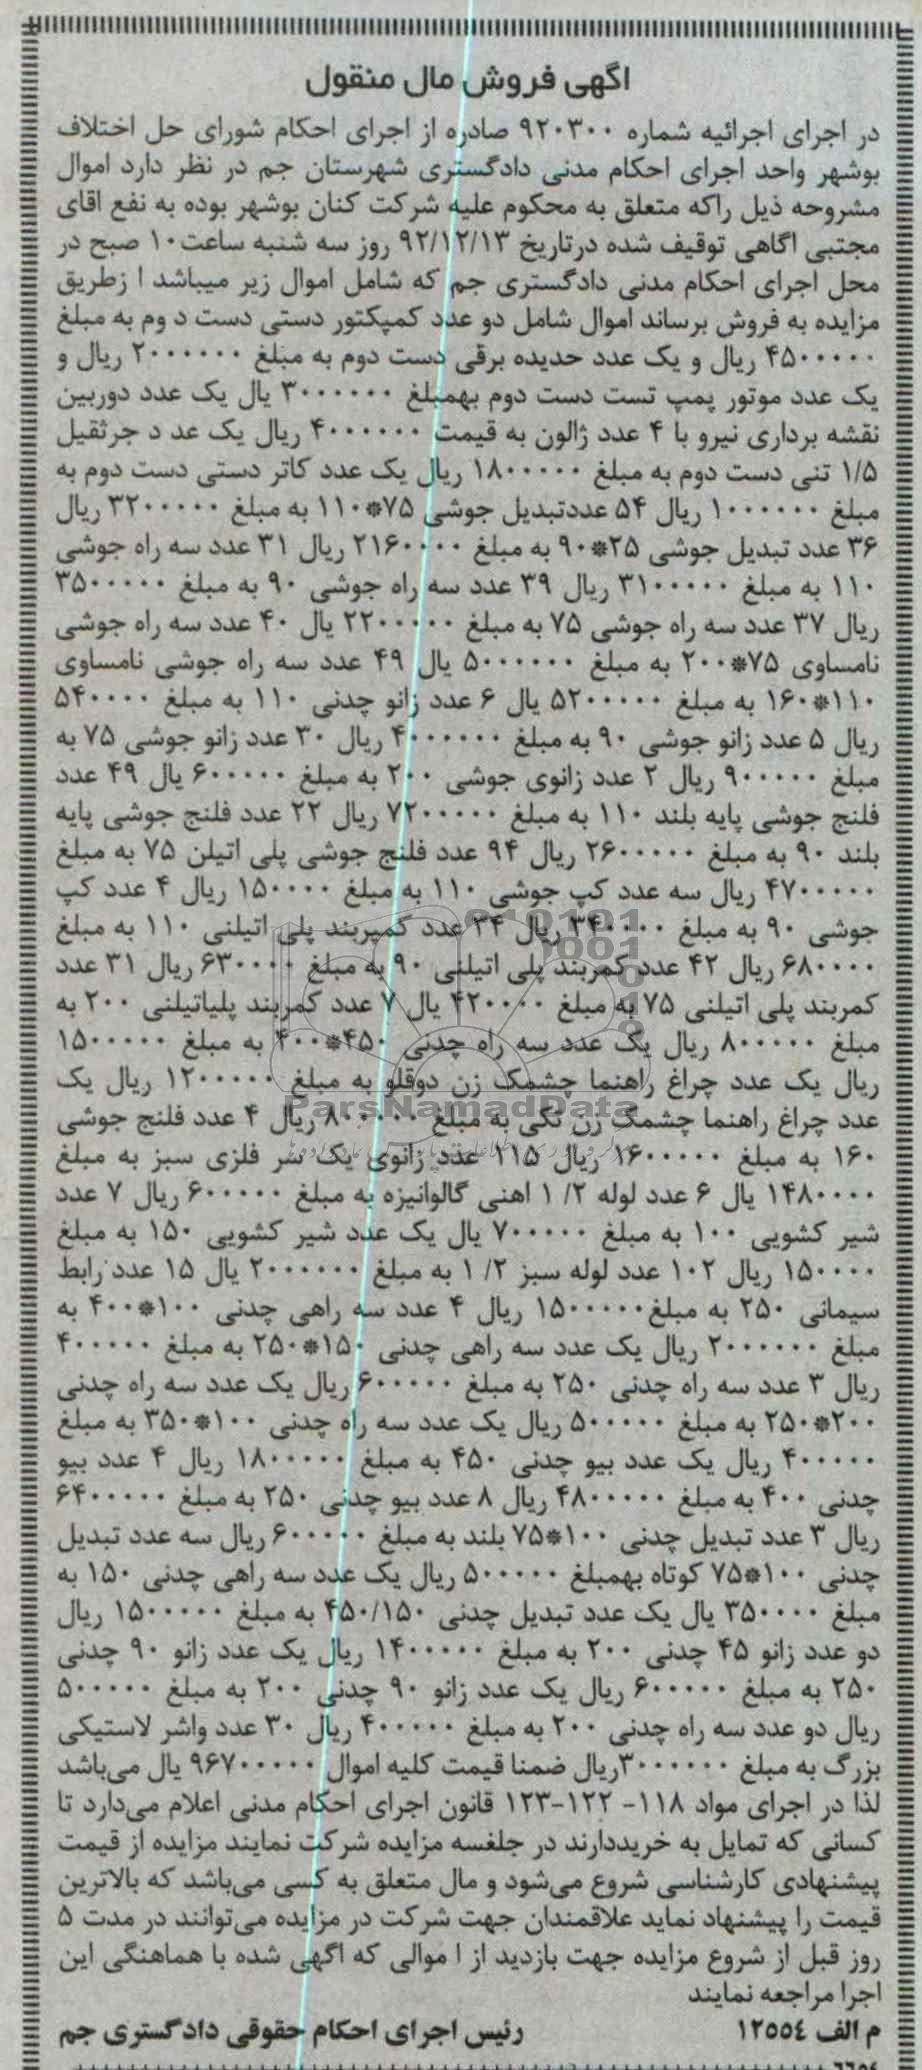 اگهی فروش مال منقول
در اجرای اجرائیه شماره ۹۲۰۳۰۰ صادره از اجرای احکام شورای حل اختلاف
بوشهر واحد اجرای احکام مدنی دادگستری شهرستان جم در نظر دارد اموال
مشروحه ذیل راکه متعلق به محکوم علیه شرکت کنان بوشهر بوده به نفع اقای
مجتبی اگاهی توقیف شده درتاریخ ۹۲/۱۲/۱۳ روز سه شنبه ساعت۱۰ صبح در
محل اجرای احکام مدنی دادگستری جم که شامل اموال زیر میباشد ا زطریق
مزایده به فروش برساند اموال شامل دو عدد کمپکتور دستی دست د وم به مبلغ
۴۵۰۰۰۰۰ ریال و یک عدد حدیده برقی دست دوم به مبلغ ۲۰۰۰۰۰۰ ریال و
یک عدد موتور پمپ تست دست دوم بهمبلغ ۳۰۰۰۰۰۰ یال یک عدد دوربین
نقشه برداری نیرو با ۴ عدد ژالون به قیمت ۴۰۰۰۰۰۰ ریال یک عد د جرثقیل
۱/۵ تنی دست دوم به مبلغ ۱۸۰۰۰۰۰ ریال یک عدد کاتر دستی دست دوم به
مبلغ ۱۰۰۰۰۰۰ ریال ۵۴ عددتبدیل جوشی ۷۵*۱۱۰ به مبلغ ۳۲۰۰۰۰۰ ریال
۳۶ عدد تبدیل جوشی ۲۵*۹۰ به مبلغ ۲۱۶۰۰۰۰ ریال ۳۱ عدد سه راه جوشی
۱۱۰ به مبلغ ۳۱۰۰۰۰۰ ریال ۳۹ عدد سه راه جوشی ۹۰ به مبلغ ۳۵۰۰۰۰۰
ریال ۳۷ عدد سه راه جوشی ۷۵ به مبلغ ۲۲۰۰۰۰۰ یال ۴۰ عدد سه راه جوشی
نامساوی ۷۵*۲۰۰ به مبلغ ۵۰۰۰۰۰۰ یال ۴۹ عدد سه راه جوشی نامساوی
۱۱۰*۱۶۰ به مبلغ ۵۲۰۰۰۰۰ یال ۶ عدد زانو چدنی ۱۱۰ به مبلغ ۵۴۰۰۰۰
ریال ۵ عدد زانو جوشی ۹۰ به مبلغ ۴۰۰۰۰۰۰ ریال ۳۰ عدد زانو جوشی ۷۵ به
مبلغ ۹۰۰۰۰۰ ریال ۲ عدد زانوی جوشی ۲۰۰ به مبلغ ۶۰۰۰۰۰ یال ۴۹ عدد
فلنج جوشی پایه بلند ۱۱۰ به مبلغ ۷۲۰۰۰۰۰ ریال ۲۲ عدد فلنج جوشی پایه
بلند ۹۰ به مبلغ ۲۶۰۰۰۰۰ ریال ۹۴ عدد فلنج جوشی پلی اتیلن ۷۵ به مبلغ
۴۷۰۰۰۰۰ ریال سه عدد کپ جوشی ۱۱۰ به مبلغ ۱۵۰۰۰۰ ریال ۴ عدد کپ
جوشی ۹۰ به مبلغ ۳۴۰۰۰۰ ریال ۳۴ عدد کمپربند پلی اتیلنی ۱۱۰ به مبلغ
۶۸۰۰۰۰ ریال ۴۲ عدد کمربند پلی اتیلنی ۹۰ به مبلغ ۶۳۰۰۰۰ ریال ۳۱ عدد
کمربند پلی اتیلنی ۷۵ به مبلغ ۴۲۰۰۰۰ یال ۷ عدد کمربند پلیاتیلنی ۲۰۰ به
مبلغ ۸۰۰۰۰۰ ریال یک عدد سه راه چدنی ۴۵۰*۴۰۰ به مبلغ ۱۵۰۰۰۰۰
ریال یک عدد چراغ راهنما چشمک زن دوقلو به مبلغ ۱۲۰۰۰۰۰ ریال یک
عدد چراغ راهنما چشمک زن تکی به مبلغ ۸۰۰۰۰۰ ریال ۴ عدد فلنج جوشی
۱۶۰ به مبلغ ۱۶۰۰۰۰۰ ریال ۱۱۵ عدد زانوی یک سر فلزی سبز به مبلغ
۱۴۸۰۰۰۰ یال ۶ عدد لوله ۲/ ۱ اهنی گالوانیزه به مبلغ ۶۰۰۰۰۰ ریال ۷ عدد
شیر کشویی ۱۰۰ به مبلغ ۷۰۰۰۰۰ یال یک عدد شیر کشویی ۱۵۰ به مبلغ
۱۵۰۰۰۰ ریال ۱۰۲ عدد لوله سبز ۲/ ۱ به مبلغ ۲۰۰۰۰۰۰ یال ۱۵ عدد رابط
سیمانی ۲۵۰ به مبلغ۱۵۰۰۰۰۰ ریال ۴ عدد سه راهی چدنی ۱۰۰*۴۰۰ به
مبلغ ۲۰۰۰۰۰۰ ریال یک عدد سه راهی چدنی ۱۵۰*۲۵۰ به مبلغ ۴۰۰۰۰۰
ریال ۳ عدد سه راه چدنی ۲۵۰ به مبلغ ۶۰۰۰۰۰ ریال یک عدد سه راه چدنی
۲۰۰*۲۵۰ به مبلغ ۵۰۰۰۰۰ ریال یک عدد سه راه چدنی ۱۰۰*۳۵۰ به مبلغ
۴۰۰۰۰۰ ریال یک عدد بیو چدنی ۴۵۰ به مبلغ ۱۸۰۰۰۰۰ ریال ۴ عدد بیو
چدنی ۴۰۰ به مبلغ ۴۸۰۰۰۰۰ ریال ۸ عدد بیو چدنی ۲۵۰ به مبلغ ۶۴۰۰۰۰۰
ریال ۳ عدد تبدیل چدنی ۱۰۰*۷۵ بلند به مبلغ ۶۰۰۰۰۰ ریال سه عدد تبدیل
چدنی ۱۰۰*۷۵ کوتاه بهمبلغ ۵۰۰۰۰۰ ریال یک عدد سه راهی چدنی ۱۵۰ به
مبلغ ۳۵۰۰۰۰ یال یک عدد تبدیل چدنی ۴۵۰/۱۵۰ به مبلغ ۱۵۰۰۰۰۰ ریال
دو عدد زانو ۴۵ چدنی ۲۰۰ به مبلغ ۱۴۰۰۰۰۰ ریال یک عدد زانو ۹۰ چدنی
۲۵۰ به مبلغ ۶۰۰۰۰۰ ریال یک عدد زانو ۹۰ چدنی ۲۰۰ به مبلغ ۵۰۰۰۰۰
ریال دو عدد سه راه چدنی ۲۰۰ به مبلغ ۴۰۰۰۰۰ ریال ۳۰ عدد واشر لاستیکی
بزرگ به مبلغ ۳۰۰۰۰۰۰ریال ضمنا قیمت کلیه اموال ۹۶۷۰۰۰۰۰ یال می‌باشد
لذا در اجرای مواد ۱۱۸- ۱۲۲-۱۲۳ قانون اجرای احکام مدنی اعلام می‌دارد تا
کسانی که تمایل به خریددارند در جلغسه مزایده شرکت نمایند مزایده از قیمت
پیشنهادی کارشناسی شروع می‌شود و مال متعلق به کسی می‌باشد که بالاترین
قیمت را پیشنهاد نماید علاقمندان جهت شرکت در مزایده می‌توانند در مدت ۵
روز قبل از شروع مزایده جهت بازدید از ا موالی که اگهی شده با هماهنگی این
اجرا مراجعه نمایند
م الف ۱۲۵۵٤ رئیس اجرای احکام حقوقی دادگستری جم
ParsNamadData